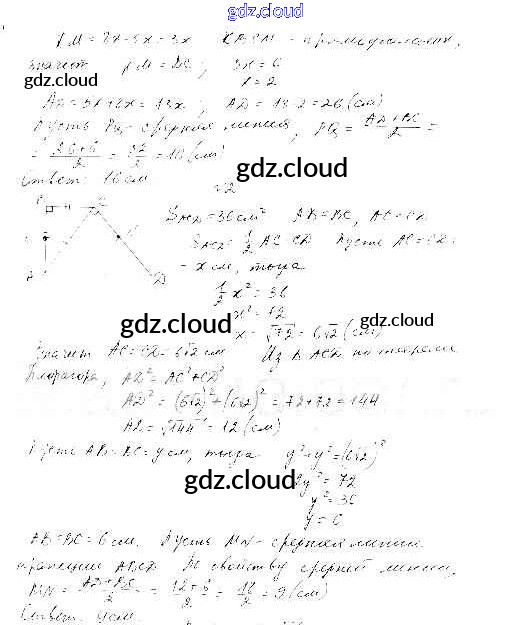 gdz.cloud
KM = 8x - 5x = 3x KBCM - прямоугольник,
значит KM = BC; 3x = 6
x = 2
gdz.cloud
AD = 5x + 8x = 13x; AD = 13·2 = 26 (см)
Пусть PQ - средняя линия, PQ = (AD + BC)/2 =
= (26+6)/2 = 32/2 = 16 (см)
gdz.cloud
Ответ: 16 см
2
S = 36 см² AB = BC, AC = CD
S = 1/2 AC·CD Пусть AC = CD =
= x см, тогда
gdz.cloud
1/2 x² = 36
x² = 72
gdz.cloud
x = √72 = 6√2 (см)
Значит AC = CD = 6√2 см Из Δ ACD по теореме
Пифагора, AD² = AC² + CD²
AD² = (6√2)² + (6√2)² = 72 + 72 = 144
AD = √144 = 12 (см)
Пусть AB = BC = y см, тогда y² + y² = (6√2)²
gdz.cloud
2y² = 72
y² = 36
y = 6
AB = BC = 6 см. Пусть MN - средняя линия
трапеции ABCD По свойству средней линии,
MN = (AD + BC)/2 = (12+6)/2 = 18/2 = 9 (см)
gdz.cloud
Ответ: